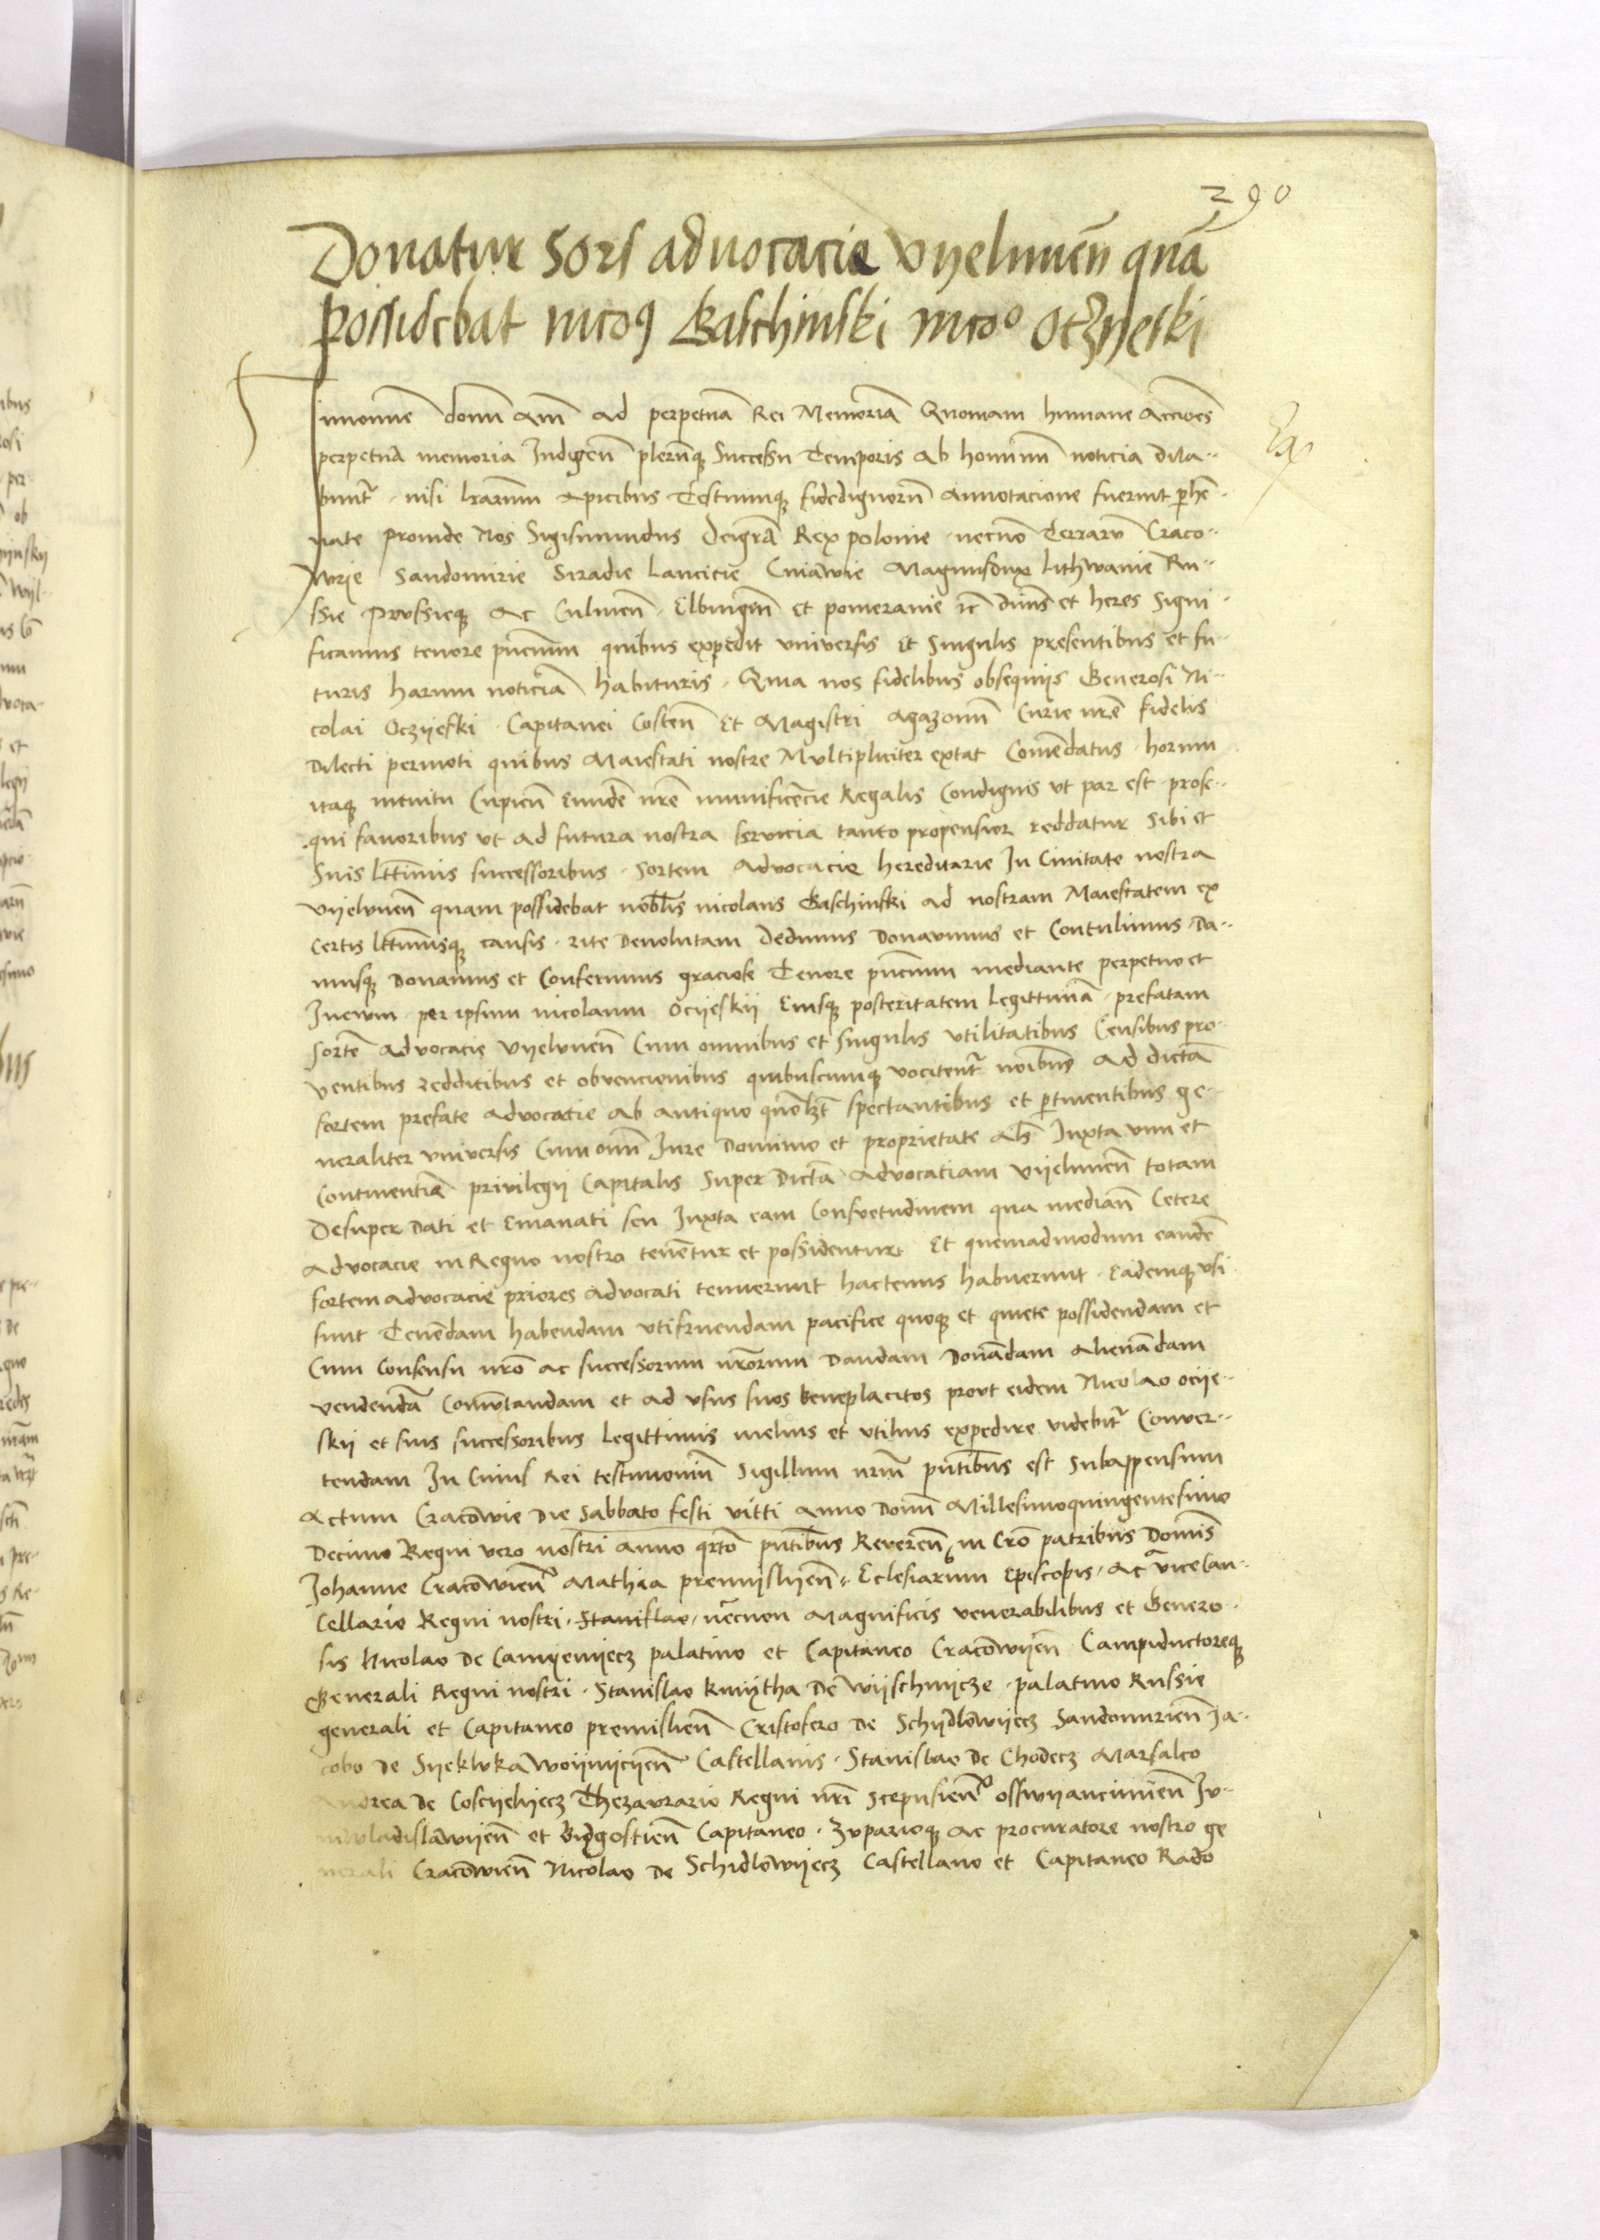 290
Donatur sors advocacie vyelunen̄ quā
possidebat nico9 Gaschinski nicoº oczyeski
Innomīe domī amē Ad perpetuā Rei Memoriā Quoniam humane Acciones
perpetua memoria Indigen̄ plerūq̨ Successu Temporis Ab hominū noticia dila-
buntr̄ nisi lrārum Apicibus Testiumq̨ fidedignorū Annotacione fuerint phē-
nate proinde Nos Sigismundus Deigrā Rex polonie necnō Terrarū Craco-
wie Sandomirie Siradie Lancicie Cuiāwie Magnusdux Lithwanie Ru-
ssie Prussieq̨ Ac Culmen̄ Elbingen̄ et pomeranie zc̄ dūns et heres Signi-
ficamus tenore pn̄cium quibus expedit universis Et Singulis presentibus et fu-
turis harum noticiā habituris Quia nos fidelibus obsequiis Generosi Ni-
colai Oczyeski Capitanei Costen̄ Et Magistri Agazonū Curie nr̄e fidelis
Dilecti permoti quibus Maiestati nostre Multipliciter extat Comēdatus horum
itaq̨ intuitu Cupien̄ Eundē nr̄e munificēcie Regalis Condignis ut par est prose-
qui favoribus ut Ad futura nostra servicia tanto propensior reddatur Sibi et
Suis lt̄timis successoribus Sortem Advocacie hereditarie In Civitate nostra
vyelunen̄ quam possidebat nob̄lis nicolaus Gaschinski ad nostram Maiestatem ex
Certis lt̄timisq̨ causis rite Devolutam Dedimus Donavimus et Contulimus Da-
musq̨ Donamus et Conferimus graciose Tenore pn̄cium mediante perpetuo et
Inevum per ipsum nicolaum Ociieskii Eiusq̨ posteritatem Legittimā prefatam
Sortē Advocacie vyelunen̄ Cum omnibus et singulis utilitatibus Censibus pro-
ventibus redditibus et obvencionibus quibuscumq̨ vocitent̄ noībus Ad dictā
sortem prefate Advocacie Ab Antiquo quol̄zt spectantibus et ptinentibus ge-
neraliter universis Cum omī Iure Dominio et proprietate Al̄s Iuxta vim et
Continentiā privilegii Capitalis Super Dictā Advocatiam vyelunen̄ totam
Desuper Dati et Emanati seu Iuxta eam Consvetudinem qua median̄ Cetere
Advocacie in Regno nostro tenētur et possidentur Et quemadmodum eandē
sortem advocacie priores Advocati tenuerunt hactenus habuerunt Eademq̨ usi
sunt Tenēdam habendam utifruendam pacifice quoq̨ et quiete possidendam et
Cum Consensu nr̄o Ac successorum nr̄orum Dandam Donādam Alienādam
vendendā Comūtandam et ad usus suos beneplacitos prout eidem Nicolao ociie-
skii et suis successoribus Legittimis melius et utilius expedire videbit̄ Conver-
tendam In Cuius Rei testimoniū Sigillum nr̄m pn̄tibus est Subappensum
Actum Cracōwie Die Sabbato festi vitti Anno Domī Millesimoquingentesimo
Decimo Regni vero nostri anno qrto pn̄tibus Reveren̄ in Cro patribus Domīs
Johanne Cracōwien̄ Mathia premisliien̄ Eclesiarum Episcopis Ac vicecan-
Cellario Regni nostri Stanislao necnon Magnificis venerabilibus et Genero-
sis Nicolao De Camyenyecz palatino et Capitaneo Cracōwiien̄ Campiductoreq̨
Generali Regni nostri Stanislao kmytha De wiischnicze palatino Russie
generali et Capitaneo premislien̄ Cristofero De Schydlōwyecz Sandomirien̄ Ja-
cobo De Syekluka woiiniciien̄ Castellanis Stanislao De Chodecz Marsalco
Andrea De Cosciielyecz Thezaurario Regni nr̄i Scepusien̄ osswyancimien̄ Iu-
niuladislāwiien̄ et Bidgostien̄ Capitaneo Zuparioq̨ Ac procuratore nostro ge
nerali Cracōwien̄ Nicolao De Schidlōwyecz Castellano et Capitaneo Rado